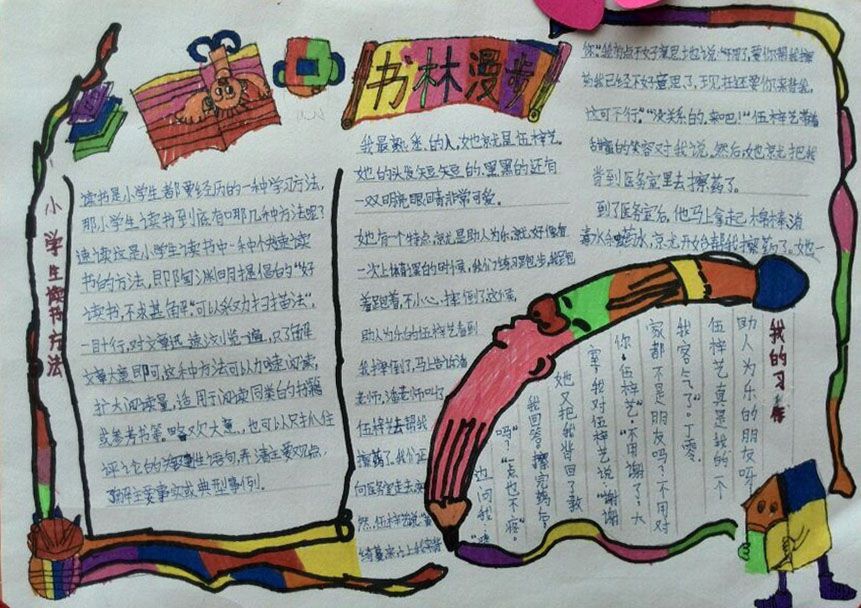 书林漫步
小学生读书方法
读书是小学生都要经历的一种学习方法,
那小学生读书到底有哪几种方法呢?
速读这是小学生读书中一种快速读
书的方法,即陶渊明提倡的"好
读书,不求甚解"可以采取扫描法",
一目十行,对文章迅速浏览一遍,只了解
文章大意即可,这种方法可以加速阅读,
扩大阅读量,适用于阅读同类的书籍
或参考书等。
评论的 语句,弄清主要观点,
了解主要事实或典型事例。
我最熟悉的人,她就是伍梓艺.
她的头发短短的,黑黑的还有
一双明亮眼睛非常可爱。
她有一个特点就是助人为乐,就好像有
一次上体育课的时候,我们练习跑步,我跑
着跑着,不小心,摔倒了,这个
助人为乐的伍梓艺看到
我摔倒了,马上告诉潘
老师,潘老师叫了
伍梓艺去帮我
擦药了。我们正
向医务室走去,突
然,伍梓艺说"
你."我有点不好意思地说:"不用了,要你帮我擦
药我已经不好意思了,现在还要你来背我,
这可不行。""没关系的,来吧!"伍梓艺带着
甜蜜的笑容对我说。然后,她就把我
背到医务室里去擦药了。
到了医务室后,他马上拿起棉棒、消
毒水和 药水,就开始帮我擦药了。她一
我的习作
边问我:"
吗?""一点也不疼。"
我回答。擦完药后,
她又把我背回了教
室,我对伍梓艺说:"谢谢
你,伍梓艺""不用谢了,大
家都不是朋友吗?不用对
我客气了。"丁零,
伍梓艺真是我的一个
助人为乐的朋友呀